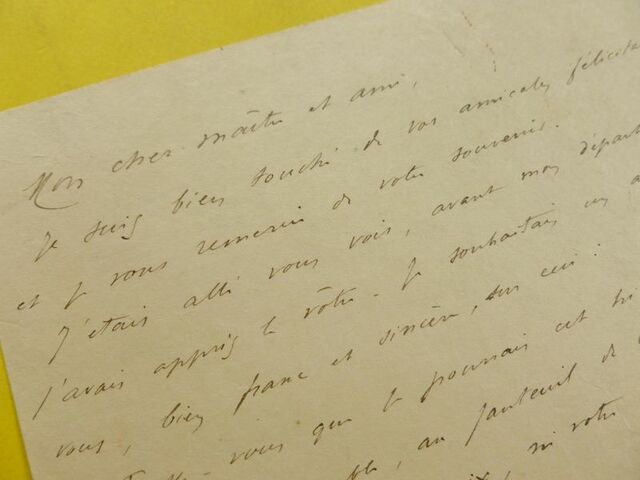 Mon cher maître et ami,
Je suis bien touché de vos amicales félicita
et je vous remercie de votre souvenir.
J'étais allé vous voir, avant mon départ
j'avais appris le vôtre. Je souhaitais un a
vous, bien franc et sincère, sur ceci :
vous que je pourrais cet hi
, au fauteuil de
, ni votre